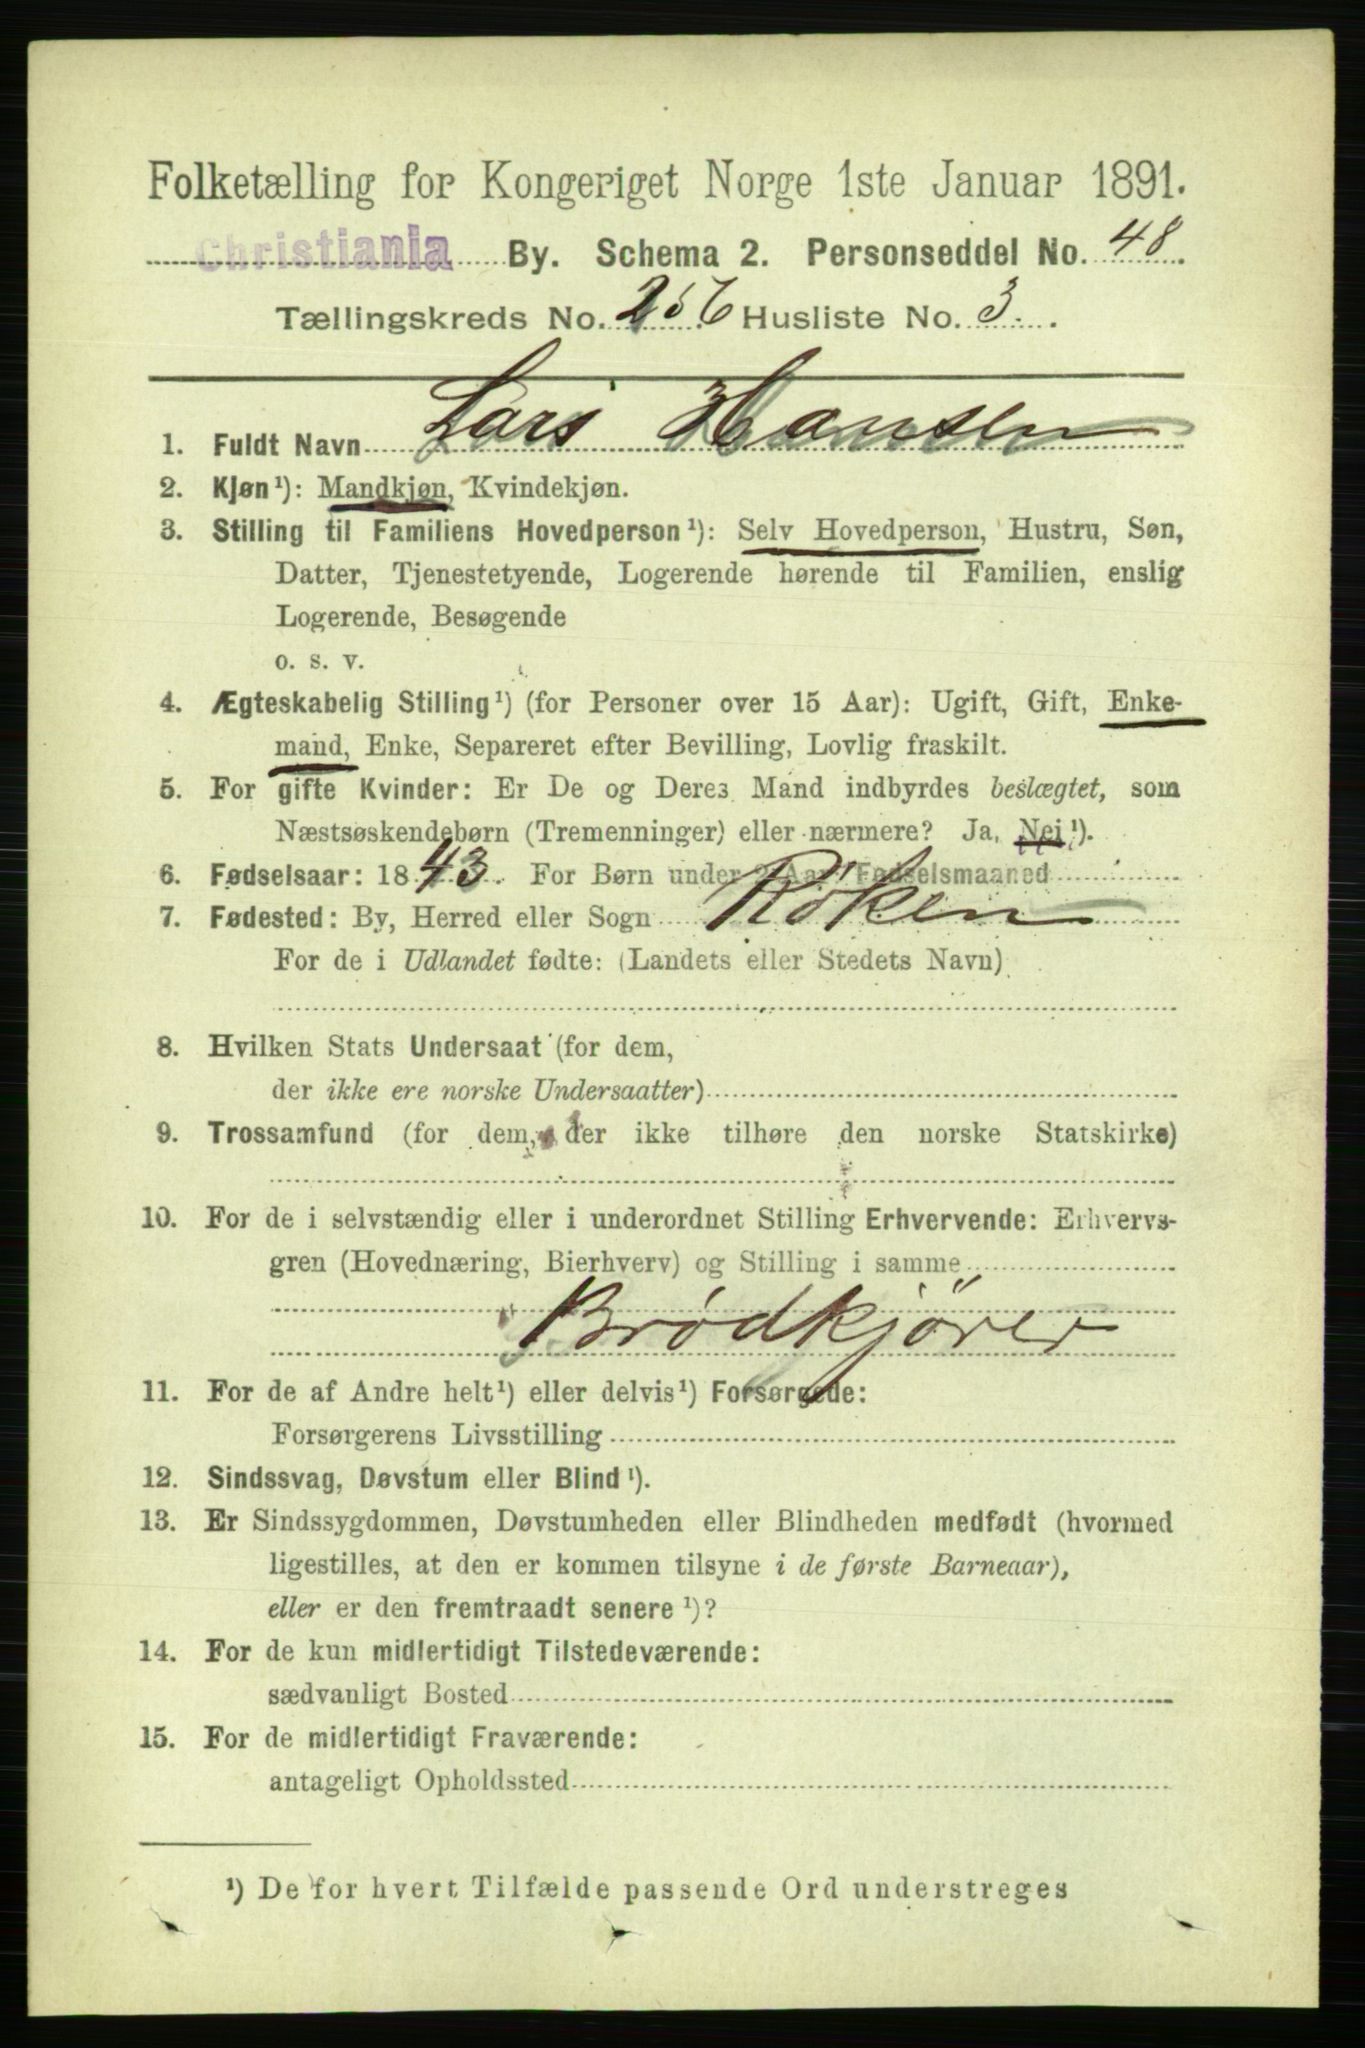 Folketælling for Kongeriget Norge 1ste Januar 1891.
Christiania By. Schema 2. Personseddel No. 48.
Tællingskreds No. 256 Husliste No. 3.
1. Fuldt Navn Lars Hansen
2. Kjøn¹): Mandkjøn, Kvindekjøn.
3. Stilling til Familiens Hovedperson¹): Selv Hovedperson, Hustru, Søn,
Datter, Tjenestetyende, Logerende hørende til Familien, enslig
Logerende, Besøgende
o. s. v.
4. Ægteskabelig Stilling¹) (for Personer over 15 Aar): Ugift, Gift, Enke-
mand, Enke, Separeret efter Bevilling, Lovlig fraskilt.
5. For gifte Kvinder: Er De og Deres Mand indbyrdes beslægtet, som
Næstsøskendebørn (Tremenninger) eller nærmere? Ja, Nei¹).
6. Fødselsaar: 1843. For Børn under 2 Aar: Fødselsmaaned
7. Fødested: By, Herred eller Sogn Röken
For de i Udlandet fødte: (Landets eller Stedets Navn)
8. Hvilken Stats Undersaat (for dem,
der ikke ere norske Undersaatter)
9. Trossamfund (for dem, der ikke tilhøre den norske Statskirke)
10. For de i selvstændig eller i underordnet Stilling Erhvervende: Erhvervs-
gren (Hovednæring, Bierhverv) og Stilling i samme
Brödkjörer
11. For de af Andre helt¹) eller delvis¹) Forsørgede:
Forsørgerens Livsstilling
12. Sindssvag, Døvstum eller Blind¹).
13. Er Sindssygdommen, Døvstumheden eller Blindheden medfødt (hvormed
ligestilles, at den er kommen tilsyne i de første Barneaar),
eller er den fremtraadt senere¹)?
14. For de kun midlertidigt Tilstedeværende:
sædvanligt Bosted
15. For de midlertidigt Fraværende:
antageligt Opholdssted
¹) De for hvert Tilfælde passende Ord understreges